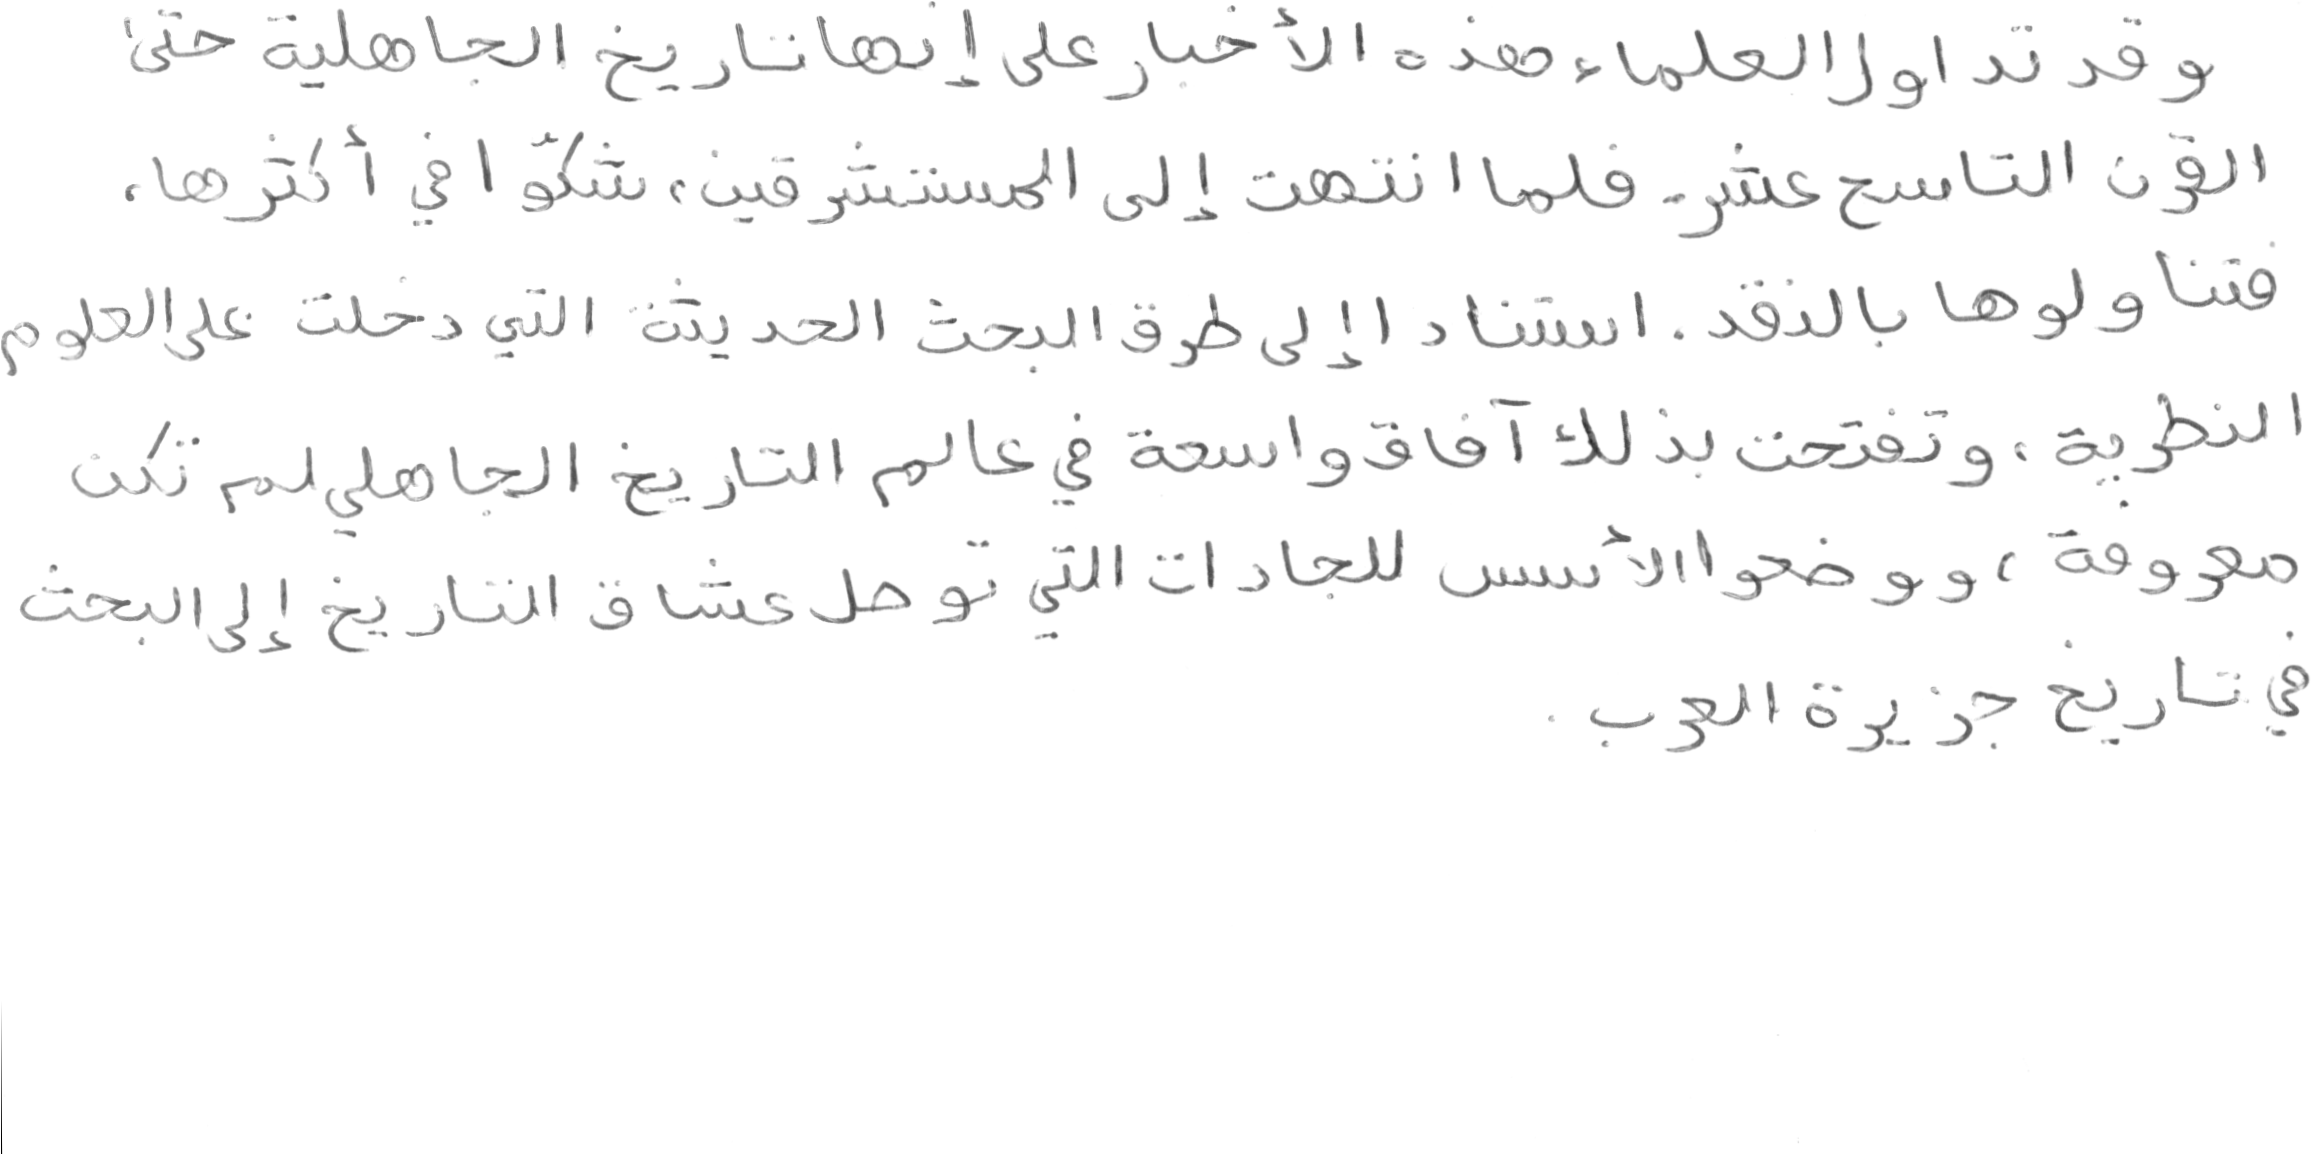 وقد تداول العلماء هذه الأخبار على إنها تاريخ الجاهلية حتى
القرن التاسع عشر. فلما انتهت إلى المستشرقين، شكّوا في أكثرها،
فتناولوها بالنقد. استنادا إلى طرق البحث الحديثة التي دخلت على العلوم
النظرية، وتفتحت بذلك آفاق واسعة في عالم التاريخ الجاهلي لم تكن
معروفة، ووضعوا الأسس للجادات التي توصل عشاق التاريخ إلى البحث
في تاريخ جزيرة العرب.